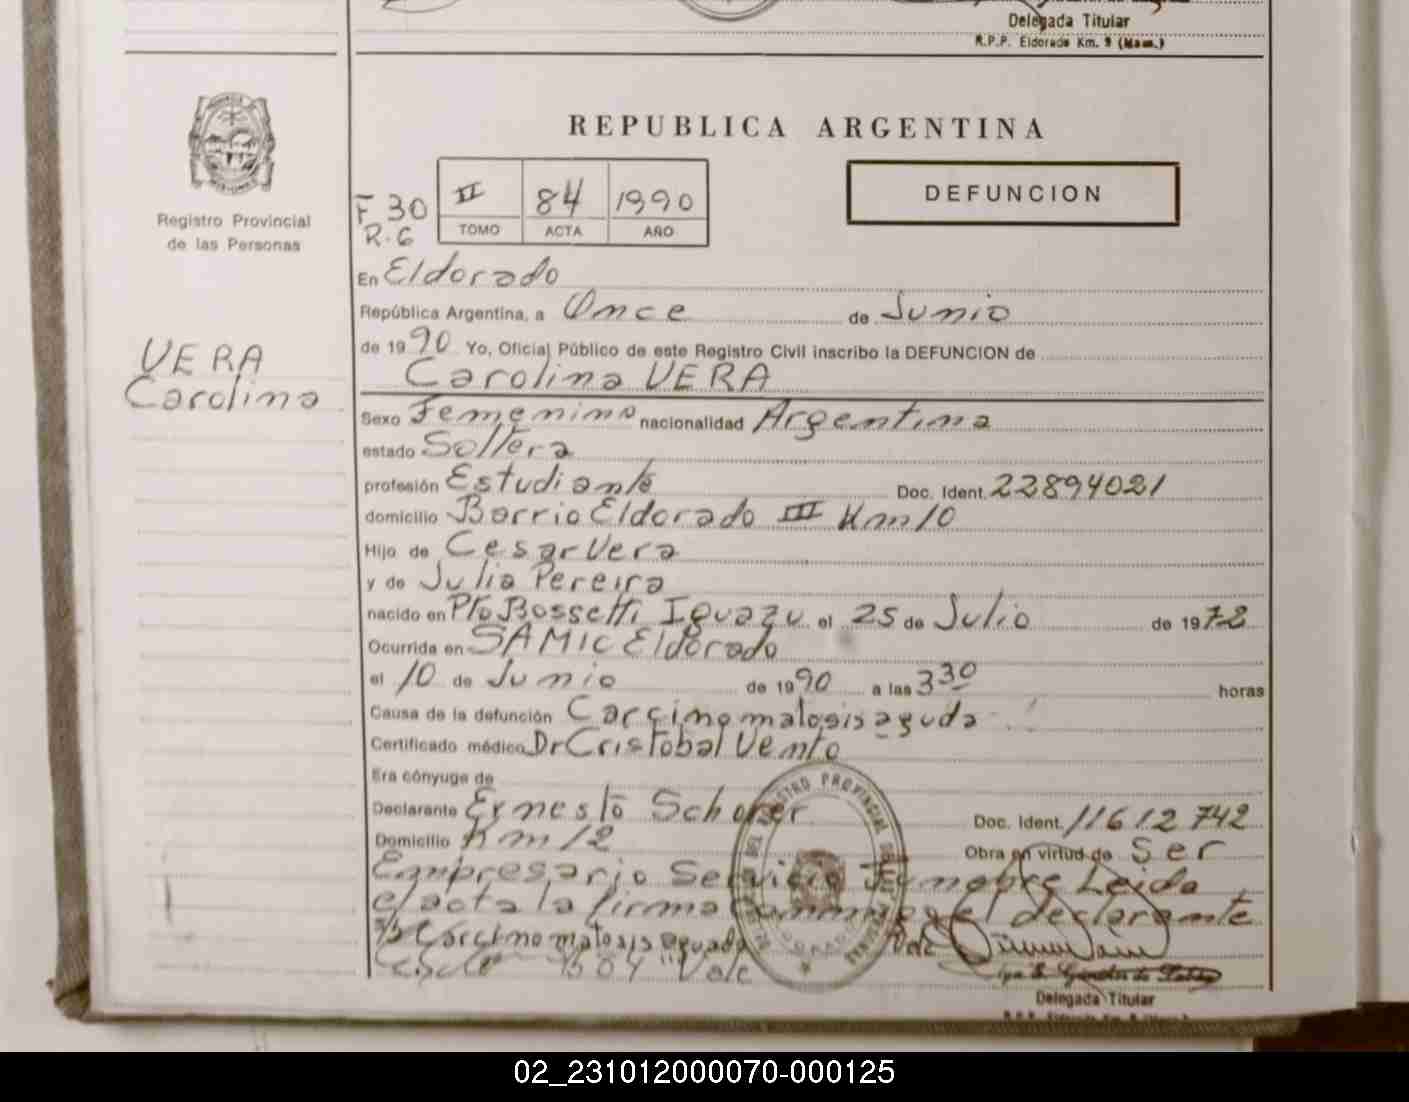 Delegada Titular
R.P.P. Eldorado Km. 9 (Mnes.)
REPUBLICA ARGENTINA
DEFUNCION
Registro Provincial
de las Personas
F 30
R. 6
II 84 1990
TOMO ACTA AÑO
En Eldorado
República Argentina, a Once de Junio
de 1990 Yo, Oficial Público de este Registro Civil inscribo la DEFUNCION de
Carolina VERA
VERA
Carolina
Sexo Femenino nacionalidad Argentina
estado Soltera
profesión Estudiante Doc. Ident. 22894021
domicilio Barrio Eldorado III Km 10
Hijo de Cesar Vera
y de Julia Pereira
nacido en Pto Bossetti Iguazu el 25 de Julio de 1972
Ocurrida en SAMIC Eldorado
el 10 de Junio de 1990 a las 3 30 horas
Causa de la defunción Carcinomatosis aguda
Certificado médico Dr Cristobal Vento
Era cónyuge de
Declarante Ernesto Schorer Doc. Ident. 11612742
Domicilio Km 12 Obra en virtud de Ser
Empresario Servicio Funebre Leida
el acta la firma el declarante
Carcinomatosis aguda Vale
Vale
Delegada Titular
02_231012000070-000125